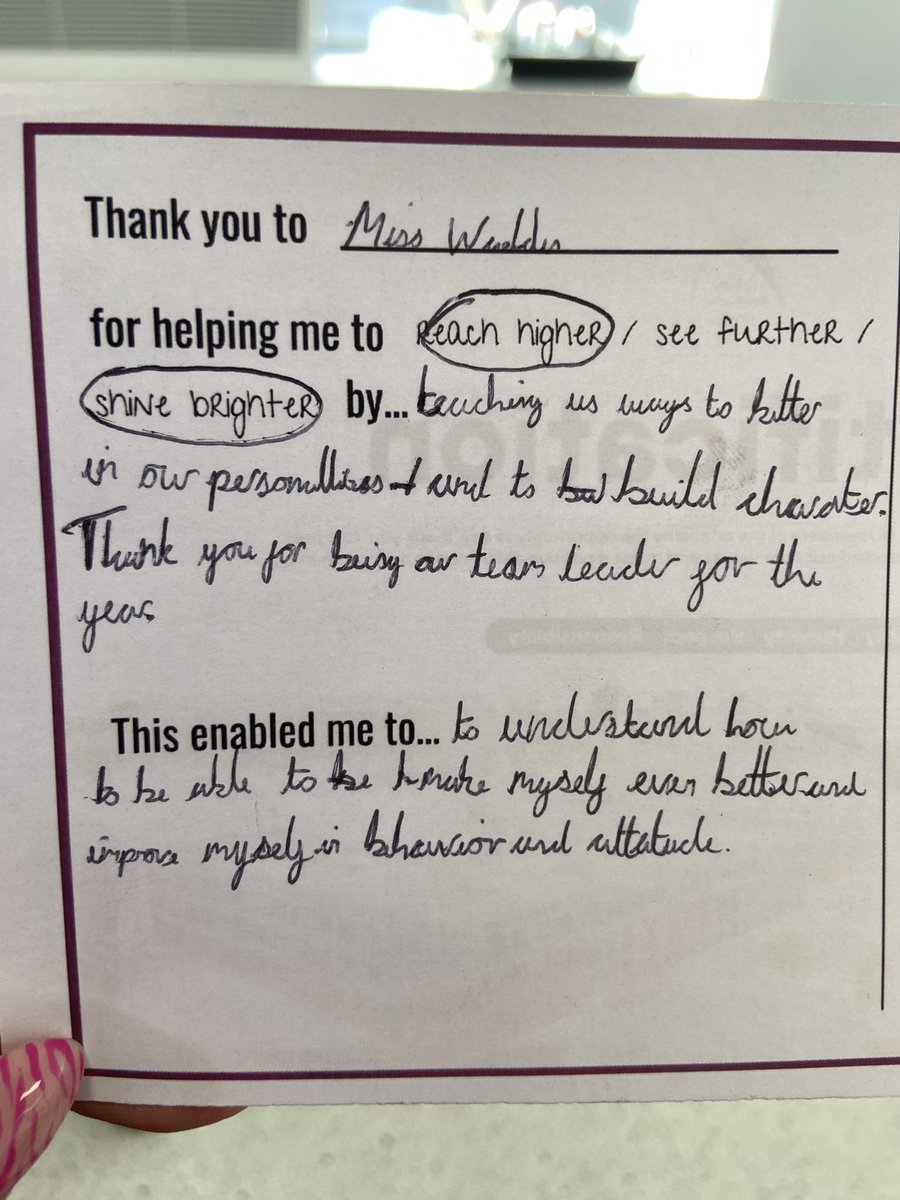 Thank you to Miss
for helping me to Reach higher / see further /
shine brighter by... teaching us ways to better
in our and to build character.
Thank you for being our team leader for the
year.
This enabled me to... to understand how
to be able to be make myself even better and
improve myself in behavior and attatude.